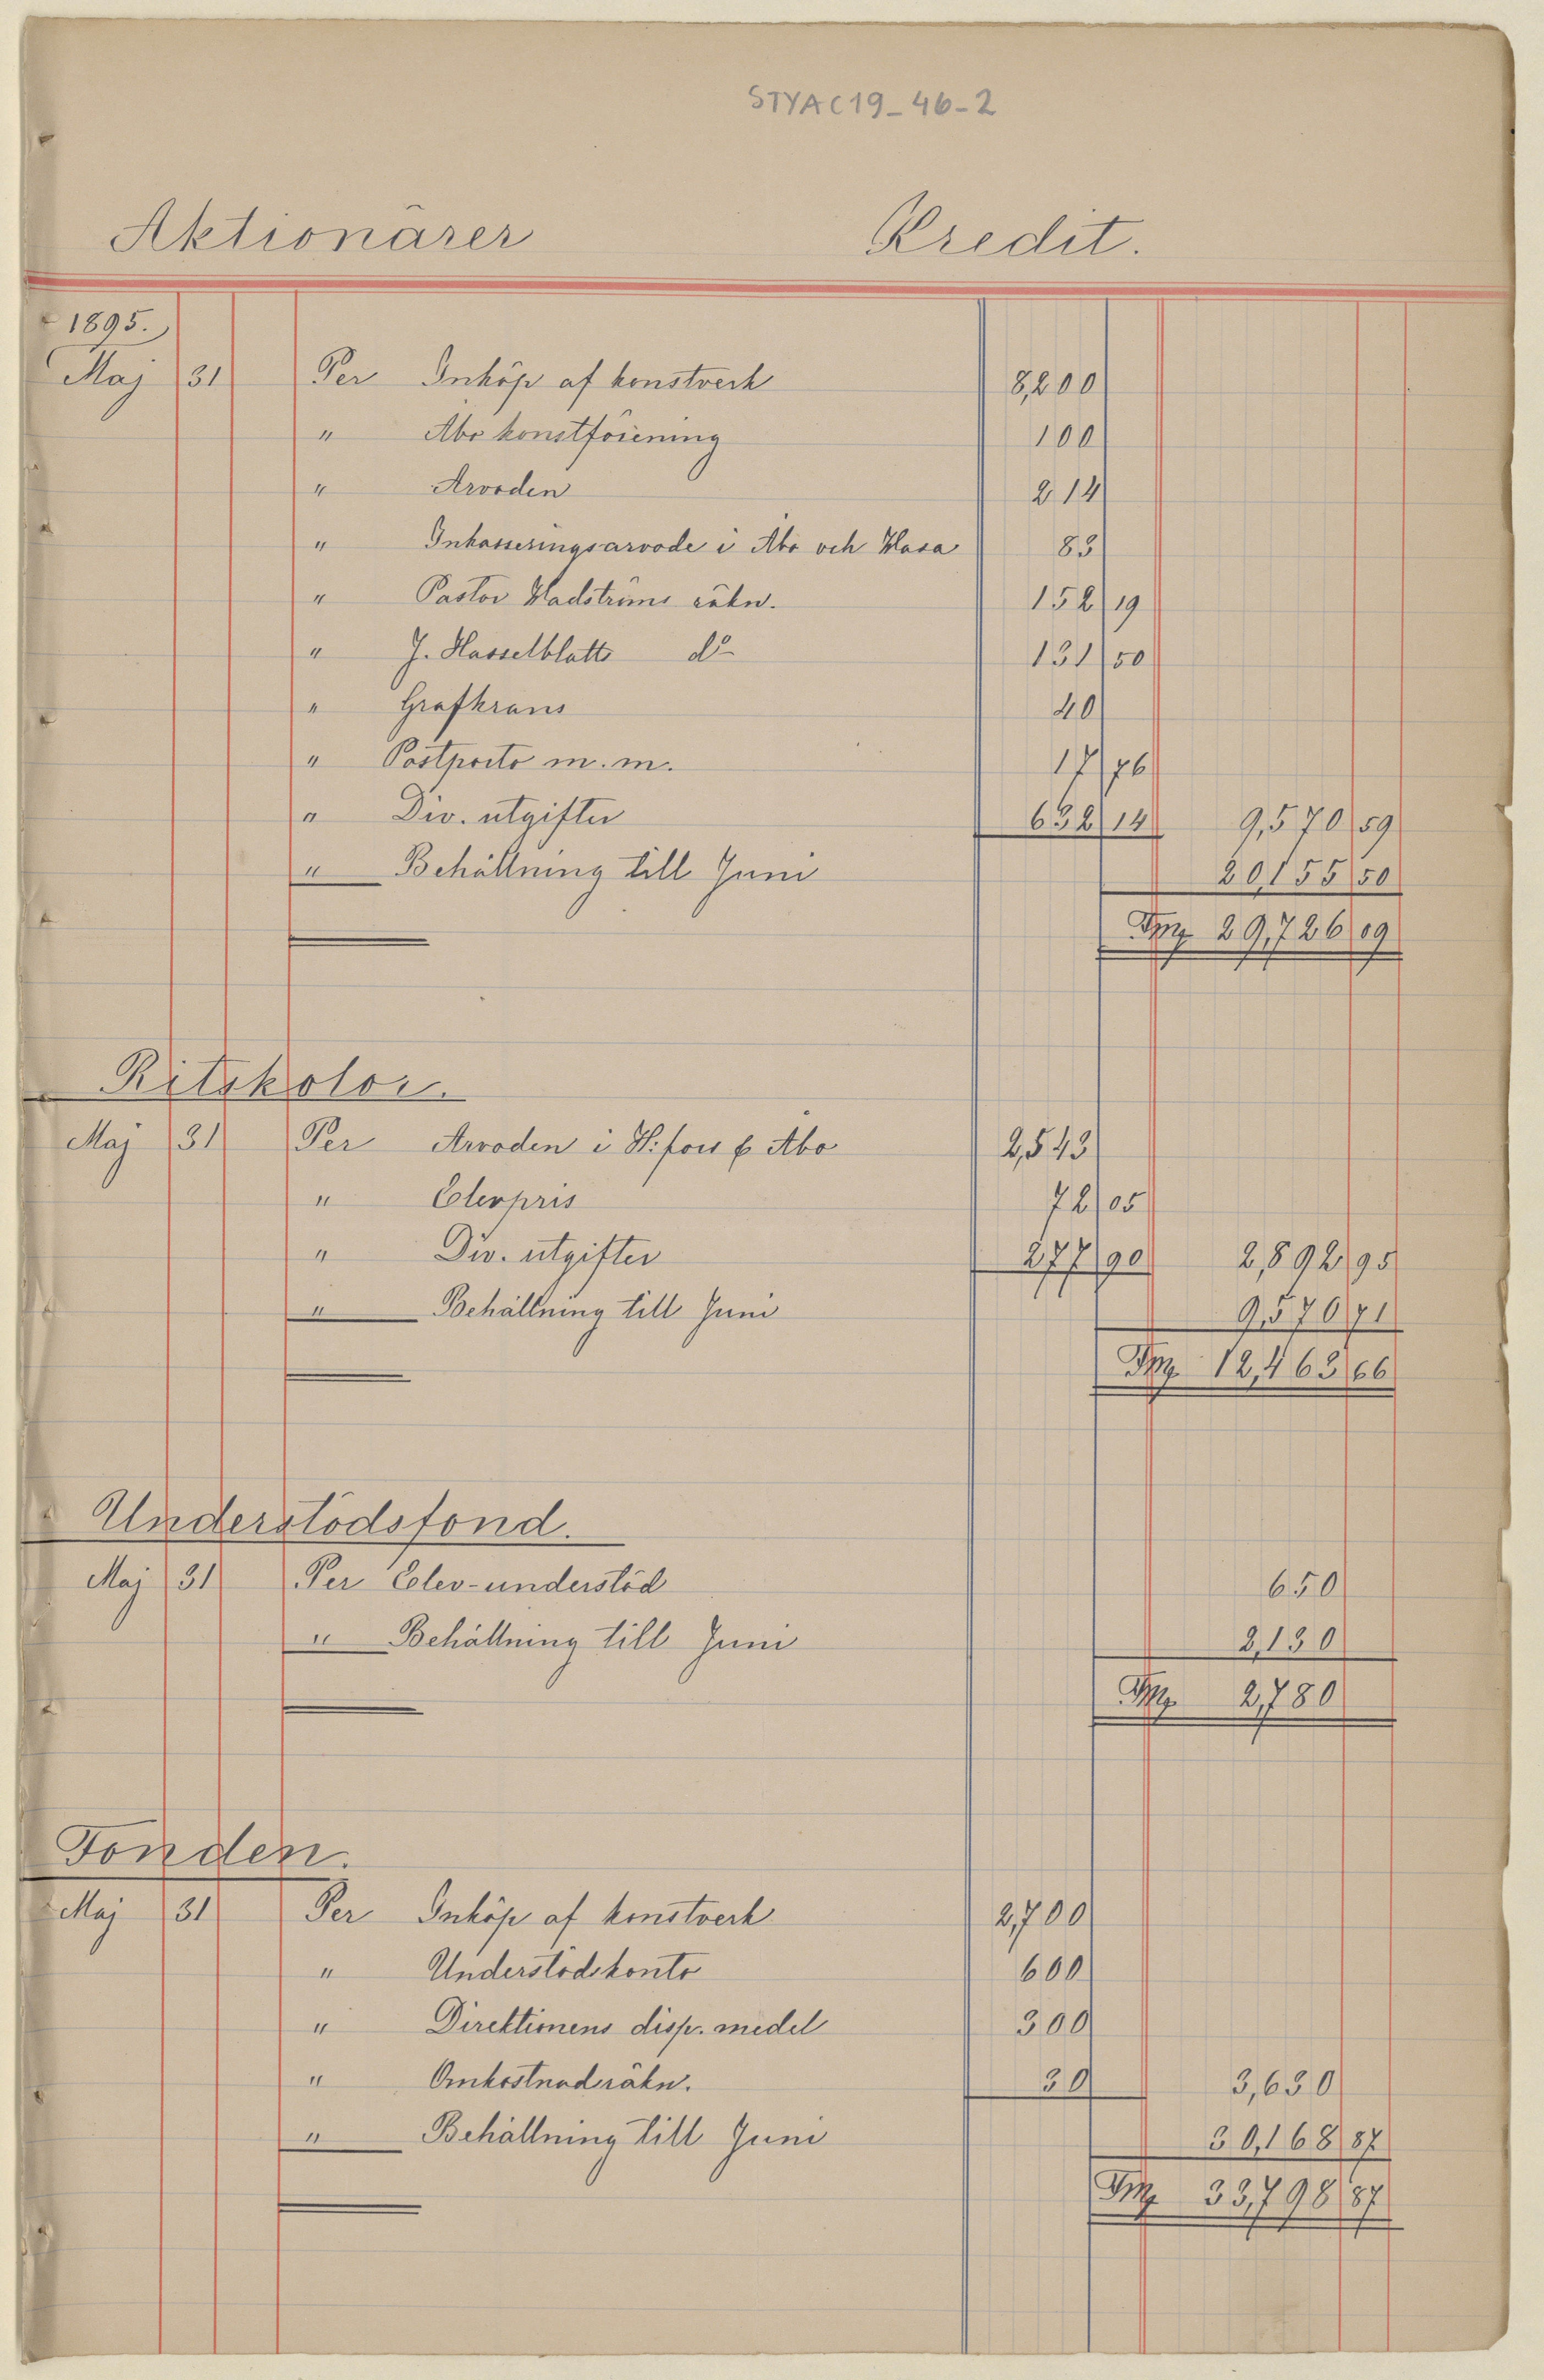 STYAC19_46-2
Aktionärer Kredit.
1895.
Maj 31 Per Inköp af konstverk 8,200
" Åbo konstförening 100
" Arvoden 214
" Inkasseringsarvode i Åbo och Wasa 83
" Pastor Wadströms räkn. 152 19
" J. Hasselblatts do 131 50
" Grafkrans 40
" Postporto m. m. 17 76
" Div. utgifter 632 14 9,570 59
" Behållning till Juni 20,155 50
Fmg 29,726 09
Ritskolor.
Maj 31 Per Arvoden i H:fors & Åbo 2,543
" Elevpris 72 05
" Div. utgifter 277 90 2,892 95
" Behållning till Juni 9,570 71
Fmg 12,463 66
Understödsfond.
Maj 31 Per Elev-understöd 650
" Behållning till Juni 2,130
Fmg 2,780
Fonden.
Maj 31 Per Inköp af konstverk 2,700
" Understödskonto 600
" Direktionens disp. medel 300
" Omkostnadsräkn. 30 3,630
" Behållning till Juni 30,168 87
Fmg 33,798 87